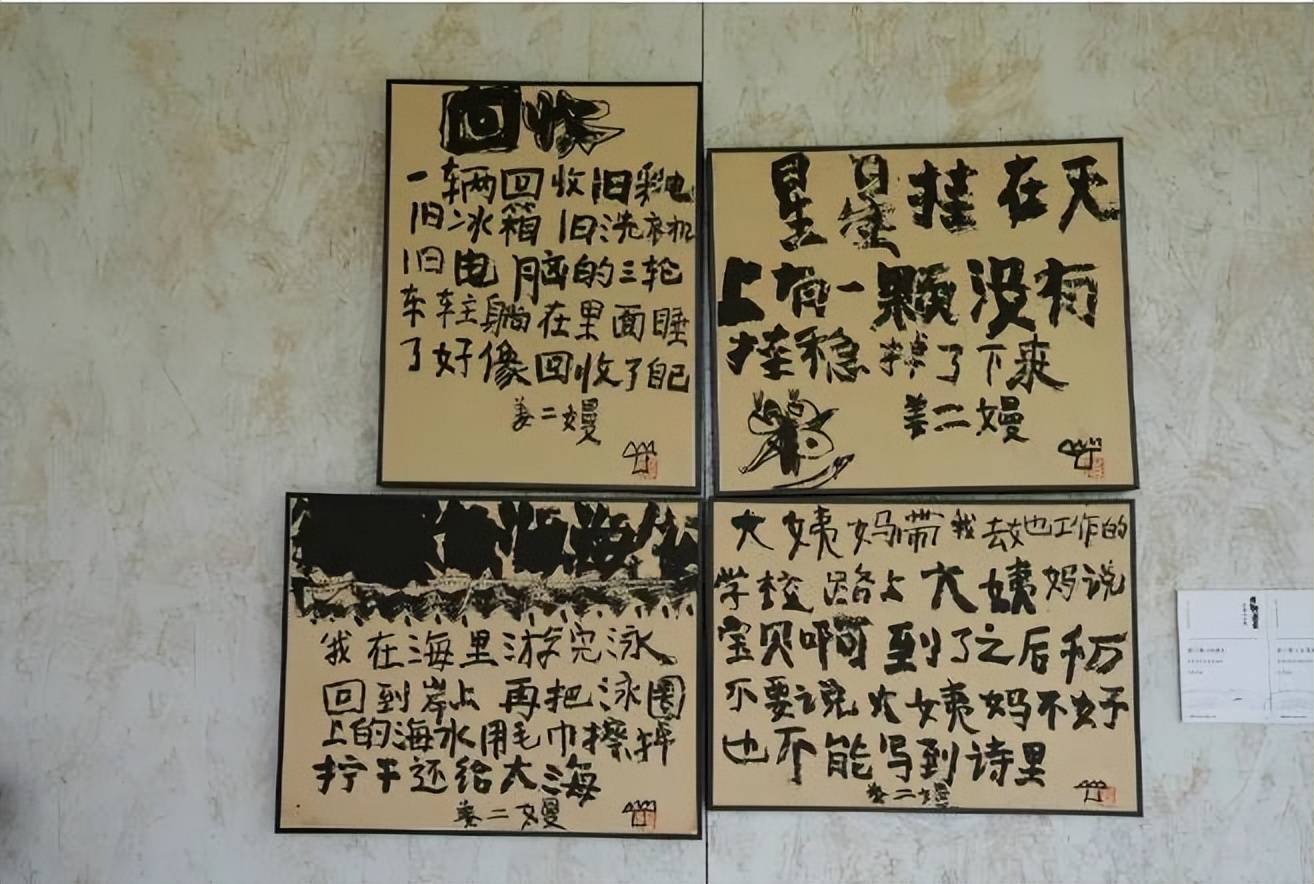 回收
一辆回收旧彩电
旧冰箱旧洗衣机
旧电脑的三轮
车车主躺在里面睡
了好像回收了自己
姜二嫚
星星挂在天
上有一颗没有
挂稳掉了下来
姜二嫚
我在海里游完泳
回到岸上再把泳圈
上的海水用毛巾擦掉
拧干还给大海
姜二嫚
大姨妈带我去她工作的
学校路上大姨妈说
宝贝啊到了之后千万
不要说大姨妈不好
也不能写到诗里
姜二嫚